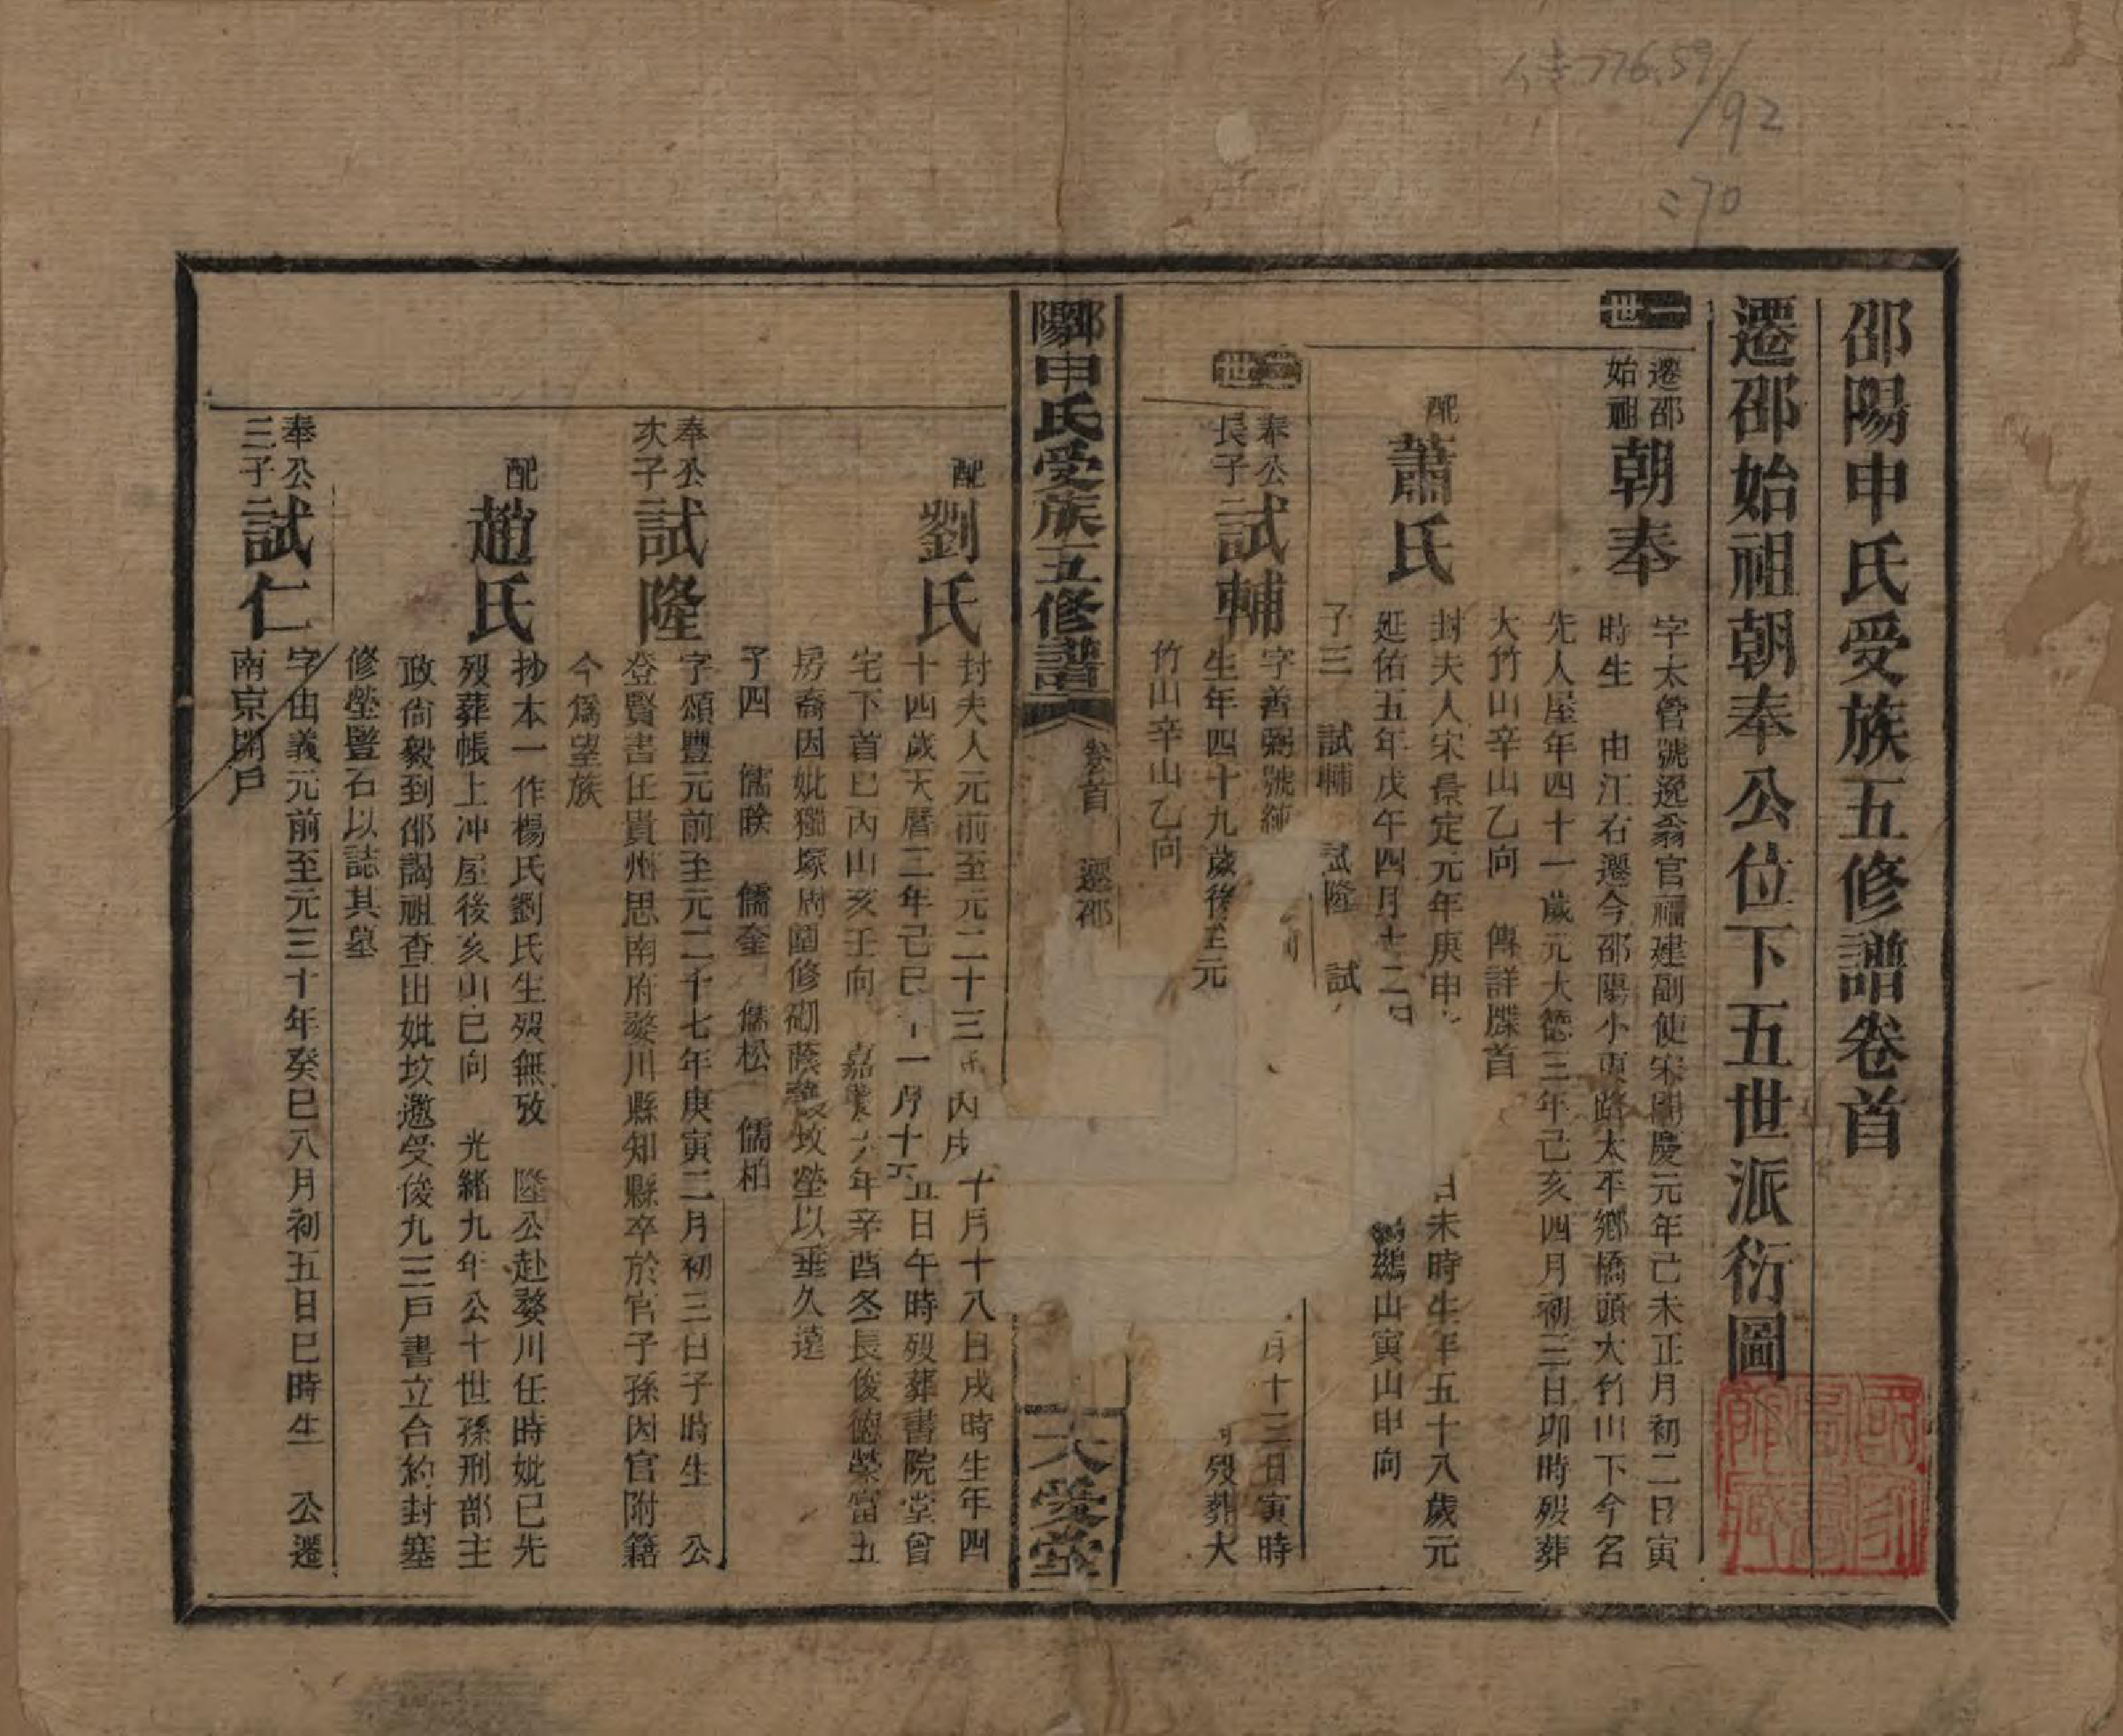 邵陽申氏受族五修譜卷首
遷邵始祖朝奉公位下五世派衍圖
一世
遷邵
始祖
朝奉
字太營號逸翁官福建副使宋開慶元年己未正月初二日寅
時生 由江右遷今邵陽小東路太平鄉橋頭大竹山下今名
先人屋年四十一歲元大德三年己亥四月初三日卯時歿葬
大竹山辛山乙向 傳詳牒首
配
蕭氏
封夫人宋景定元年庚申
日未時生年五十八歲元
延佑五年戊午四月十二日
山寅山申向
子三 試輔 試隆 試
二世
奉公
長子
試輔
字善弼號純
月十三日寅時
生年四十九歲後至元
歿葬大
竹山辛山乙向
邵陽申氏受族五修譜
卷首 遷邵
大受堂
配
劉氏
封夫人元前至元二十三年丙戌十月十八日戌時生年四
十四歲天曆二年己巳十一月十五日午時歿葬書院堂曾
宅下首巳丙山亥壬向 嘉慶六年辛酉冬長俊德榮富五
房裔因妣獨塚周圍修砌蔭護墳塋以垂久遠
子四 儒睽 儒奎 儒松 儒柏
奉公
次子
試隆
字頌豐元前至元二十七年庚寅二月初三日子時生 公
登賢書任貴州思南府婺川縣知縣卒於官子孫因官附籍
今爲望族
配
趙氏
抄本一作楊氏劉氏生歿無攷 隆公赴婺川任時妣已先
歿葬帳上冲屋後亥山巳向 光緒九年公十世孫刑部主
政尙毅到邵謁祖查出妣坟邀受俊九三戶書立合約封塞
修塋豎石以誌其墓
奉公
三子
試仁
字由義元前至元三十年癸巳八月初五日巳時生 公遷
南京開戶
776.59/92
270